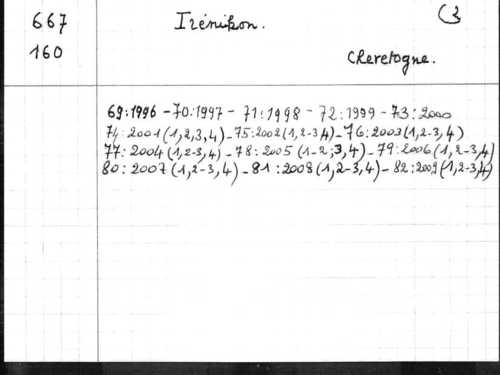 667 Irénikon. (3
160 Chevetogne.
69:1996 - 70:1997 - 71:1998 - 72:1999 - 73:2000
74:2001(1,2,3,4) - 75:2002(1,2-3,4) - 76:2003(1,2-3,4)
77:2004(1,2-3,4) - 78:2005(1-2;3,4) - 79:2006(1,2-3,4)
80:2007(1,2-3,4) - 81:2008(1,2-3,4) - 82:2009(1,2-3,4)